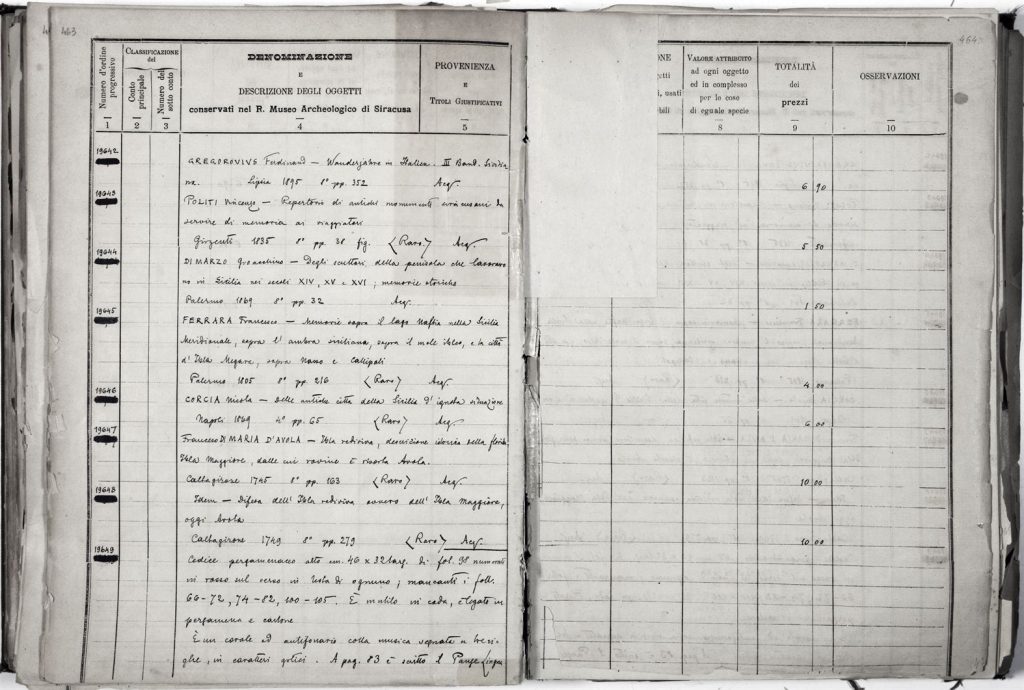 463
Numero d'ordine progressivo
CLASSIFICAZIONE del
Conto principale
Numero del sotto conto
DENOMINAZIONE
E
DESCRIZIONE DEGLI OGGETTI
conservati nel R. Museo Archeologico di Siracusa
PROVENIENZA
E
TITOLI GIUSTIFICATIVI
1 2 3 4 5
19642
GREGOROVIUS Ferdinand — Wanderjahre in Italien. III Band. Sicilia
na. Lipsia 1895 8° pp. 352 Acq.
19643
POLITI Vincenzo — Repertorio di antichi monumenti siracusani da
servire di memoria ai viaggiatori
Girgenti 1835 8° pp. 38 fig. (Raro) Acq.
19644
DI MARZO Gioacchino — Degli scultori della penisola che lavoraro
no in Sicilia nei secoli XIV, XV e XVI; memorie storiche
Palermo 1869 8° pp. 32 Acq.
19645
FERRARA Francesco — Memorie sopra il lago Naftia nella Sicilia
Meridionale, sopra l'ambra siciliana, sopra il mele Ibleo, e la città
d'Ibla Megara, sopra Nasso e Callipoli
Palermo 1805 8° pp. 216 (Raro) Acq.
19646
CORCIA Nicola — Delle antiche città della Sicilia d'ignota situazione
Napoli 1869 4° pp. 65 (Raro) Acq.
19647
Francesco DI MARIA D'AVOLA — Ibla rediviva, descrizione istorica della florida
Ibla Maggiore, dalle cui rovine è risorta Avola.
Caltagirone 1745 8° pp. 163 (Raro) Acq.
19648
Idem — Difesa dell'Ibla rediviva ovvero dell'Ibla Maggiore,
oggi Avola
Caltagirone 1749 8° pp. 279 (Raro) Acq.
19649
Codice pergamenaceo alto cm. 46 x 32 larg. di fol. 98 numerati
in rosso sul verso in testa di ognuno; mancanti i foll.
66-72, 74-82, 100-105. È mutilo in coda, è legato in
pergamena e cartone
È un corale ed antifonario colla musica segnata a
in caratteri gotici. A pag. 83 è scritto il Pange Lingua
464
VALORE ATTRIBUITO
ad ogni oggetto
ed in complesso
per le cose
di eguale specie
TOTALITÀ
dei
prezzi
OSSERVAZIONI
8 9 10
6 90
5 50
1 50
4 00
6 00
10 00
10 00